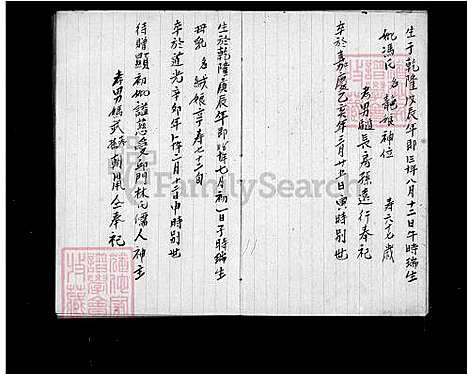 生于乾隆戊辰年即三年八月十二日午時瑞生
妣馮氏名龍娘神位 壽六十九歲
孝男 長房孫遠行奉祀
卒於嘉慶乙亥年三月廿五日寅時別世
生於乾隆庚辰年即 年七月初一日子時瑞生
母乳名絨娘享壽七十二旬
卒於道光辛卯年 年二月十二日申時別世
待贈顯初妣謚慈愛邱門林氏儒人神主
孝男 武 朝 仝奉祀
FamilySearch